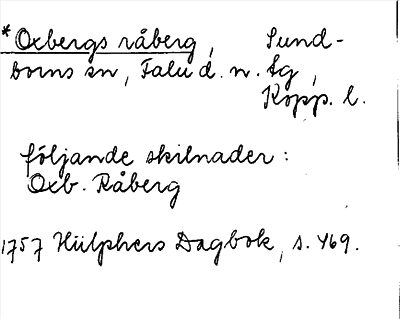 * Oxbergs råberg, Sund-
borns sn, Falu d. n. tg,
Kopp. l.
följande skilnader:
Oxb. Råberg
1757 Hülphers Dagbok, s. 469.